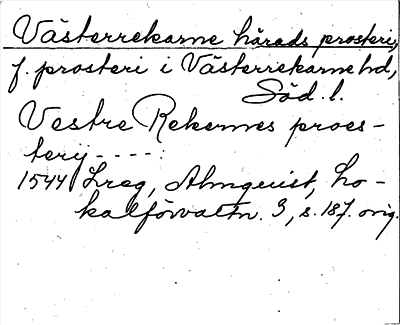 Västerrekarne härads prosteri,
f. prosteri i Västerrekarne hd,
Söd. l.
Vestre Rekernes proes-
terij - - - - :
1544 Lreg, Almquist, Lo-
kalförvaltn. 3, s. 187. orig.